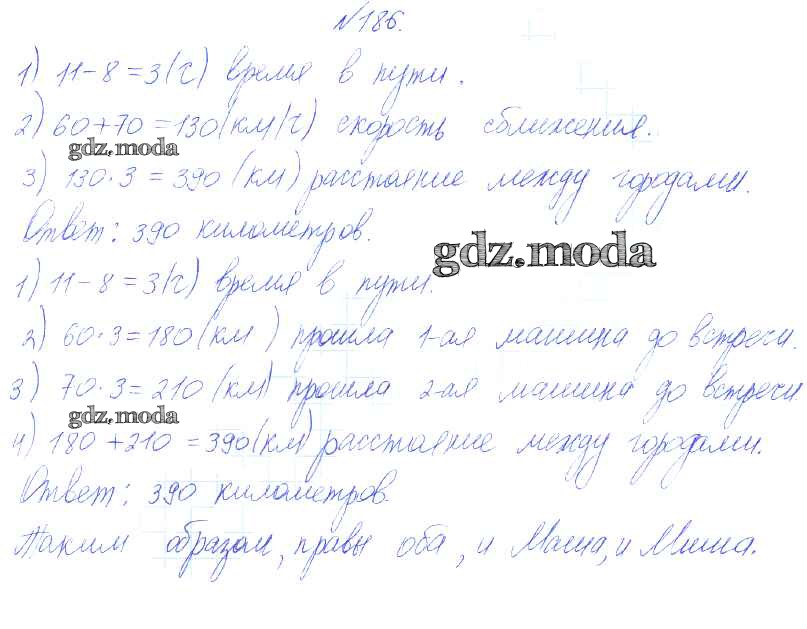 №186.
1) 11-8=3(ч) время в пути.
2) 60+70=130(км/ч) скорость сближения.
gdz.moda
3) 130·3=390 (км) расстояние между городами.
Ответ: 390 километров.
gdz.moda
1) 11-8=3(ч) время в пути.
2) 60·3=180(км) прошла 1-ая машина до встречи.
3) 70·3=210 (км) прошла 2-ая машина до встречи
gdz.moda
4) 180+210=390(км) расстояние между городами.
Ответ: 390 километров.
Таким образом, правы оба, и Маша, и Миша.